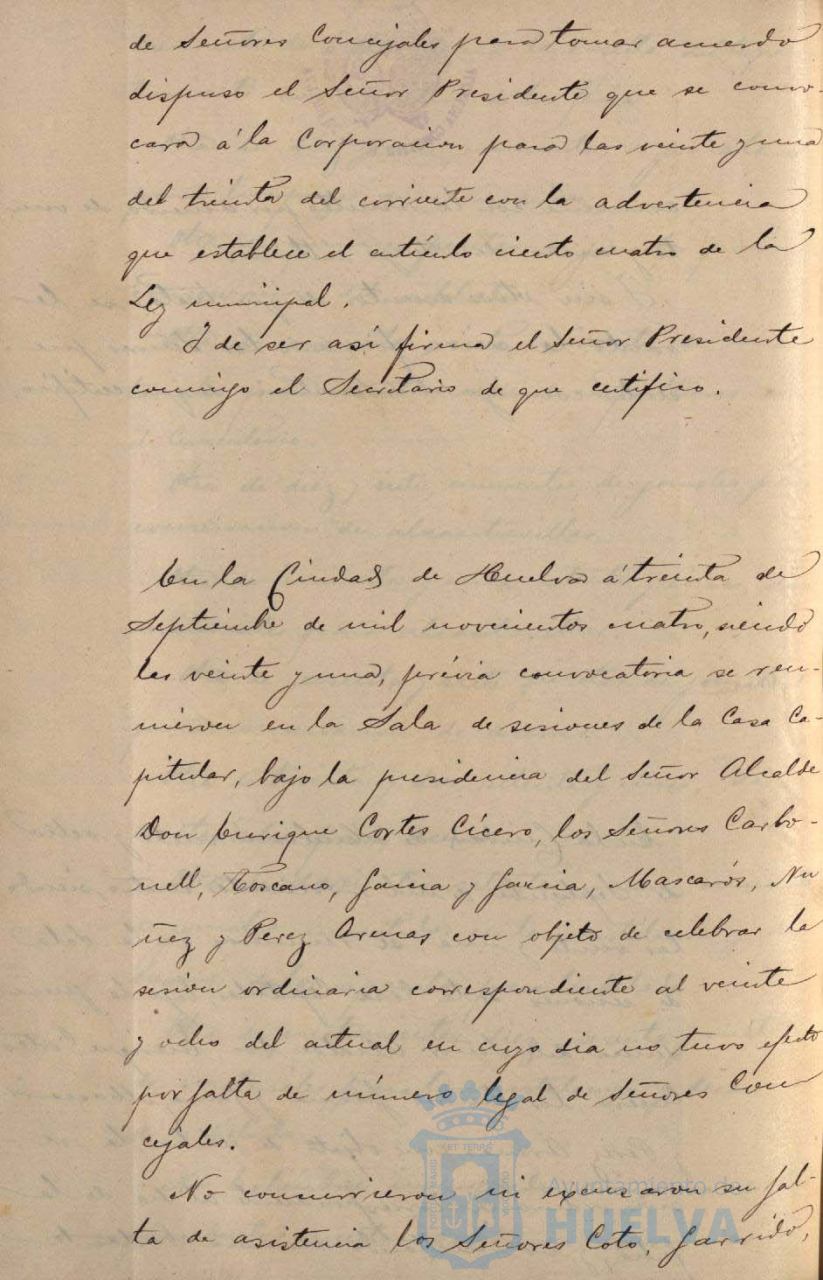 de Señores Concejales para tomar acuerdo
dispuso el Señor Presidente que se convo-
cara á la Corporacion para las veinte y una
del treinta del corriente con la advertencia
que establece el artículo ciento cuatro de la
Ley municipal.
Y de ser así firma el Señor Presidente
conmigo el Secretario de que certifico.
En la Ciudad de Huelva á treinta de
Septiembre de mil novecientos cuatro, siendo
las veinte y una, prévia convocatoria se reu-
nieron en la Sala de sesiones de la Casa Ca-
pitular, bajo la presidencia del Señor Alcalde
Don Enrique Cortes Cícero, los Señores Carbo-
nell, Toscano, Garcia y Garcia, Mascarós, Nu
ñez y Perez Arenas con objeto de celebrar la
sesion ordinaria correspondiente al veinte
y ocho del actual en cuyo dia no tuvo efecto
por falta de número legal de Señores Con
cejales.
No concurrieron ni excusaron su fal-
ta de asistencia los Señores Coto, Garrido,
Ayuntamiento de
HUELVA